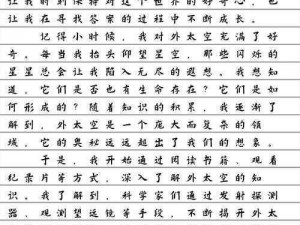 让我时刻保持对这个世界的好奇心，也
让我在寻找答案的过程中不断成长。
记得小时候，我对外太空充满了好
奇。每当我抬头仰望星空，那些闪烁的
星星总会让我陷入无尽的遐想。我想知
道，它们是否也有生命存在？它们是如
何形成的？随着知识的积累，我逐渐了
解到，外太空是一个庞大而复杂的领
域，它的奥秘远远超出了我们的想象。
于是，我开始通过阅读书籍、观看
纪录片等方式，深入了解外太空的知
识。我了解到，科学家们通过发射探测
器、观测望远镜等手段，不断揭开外太